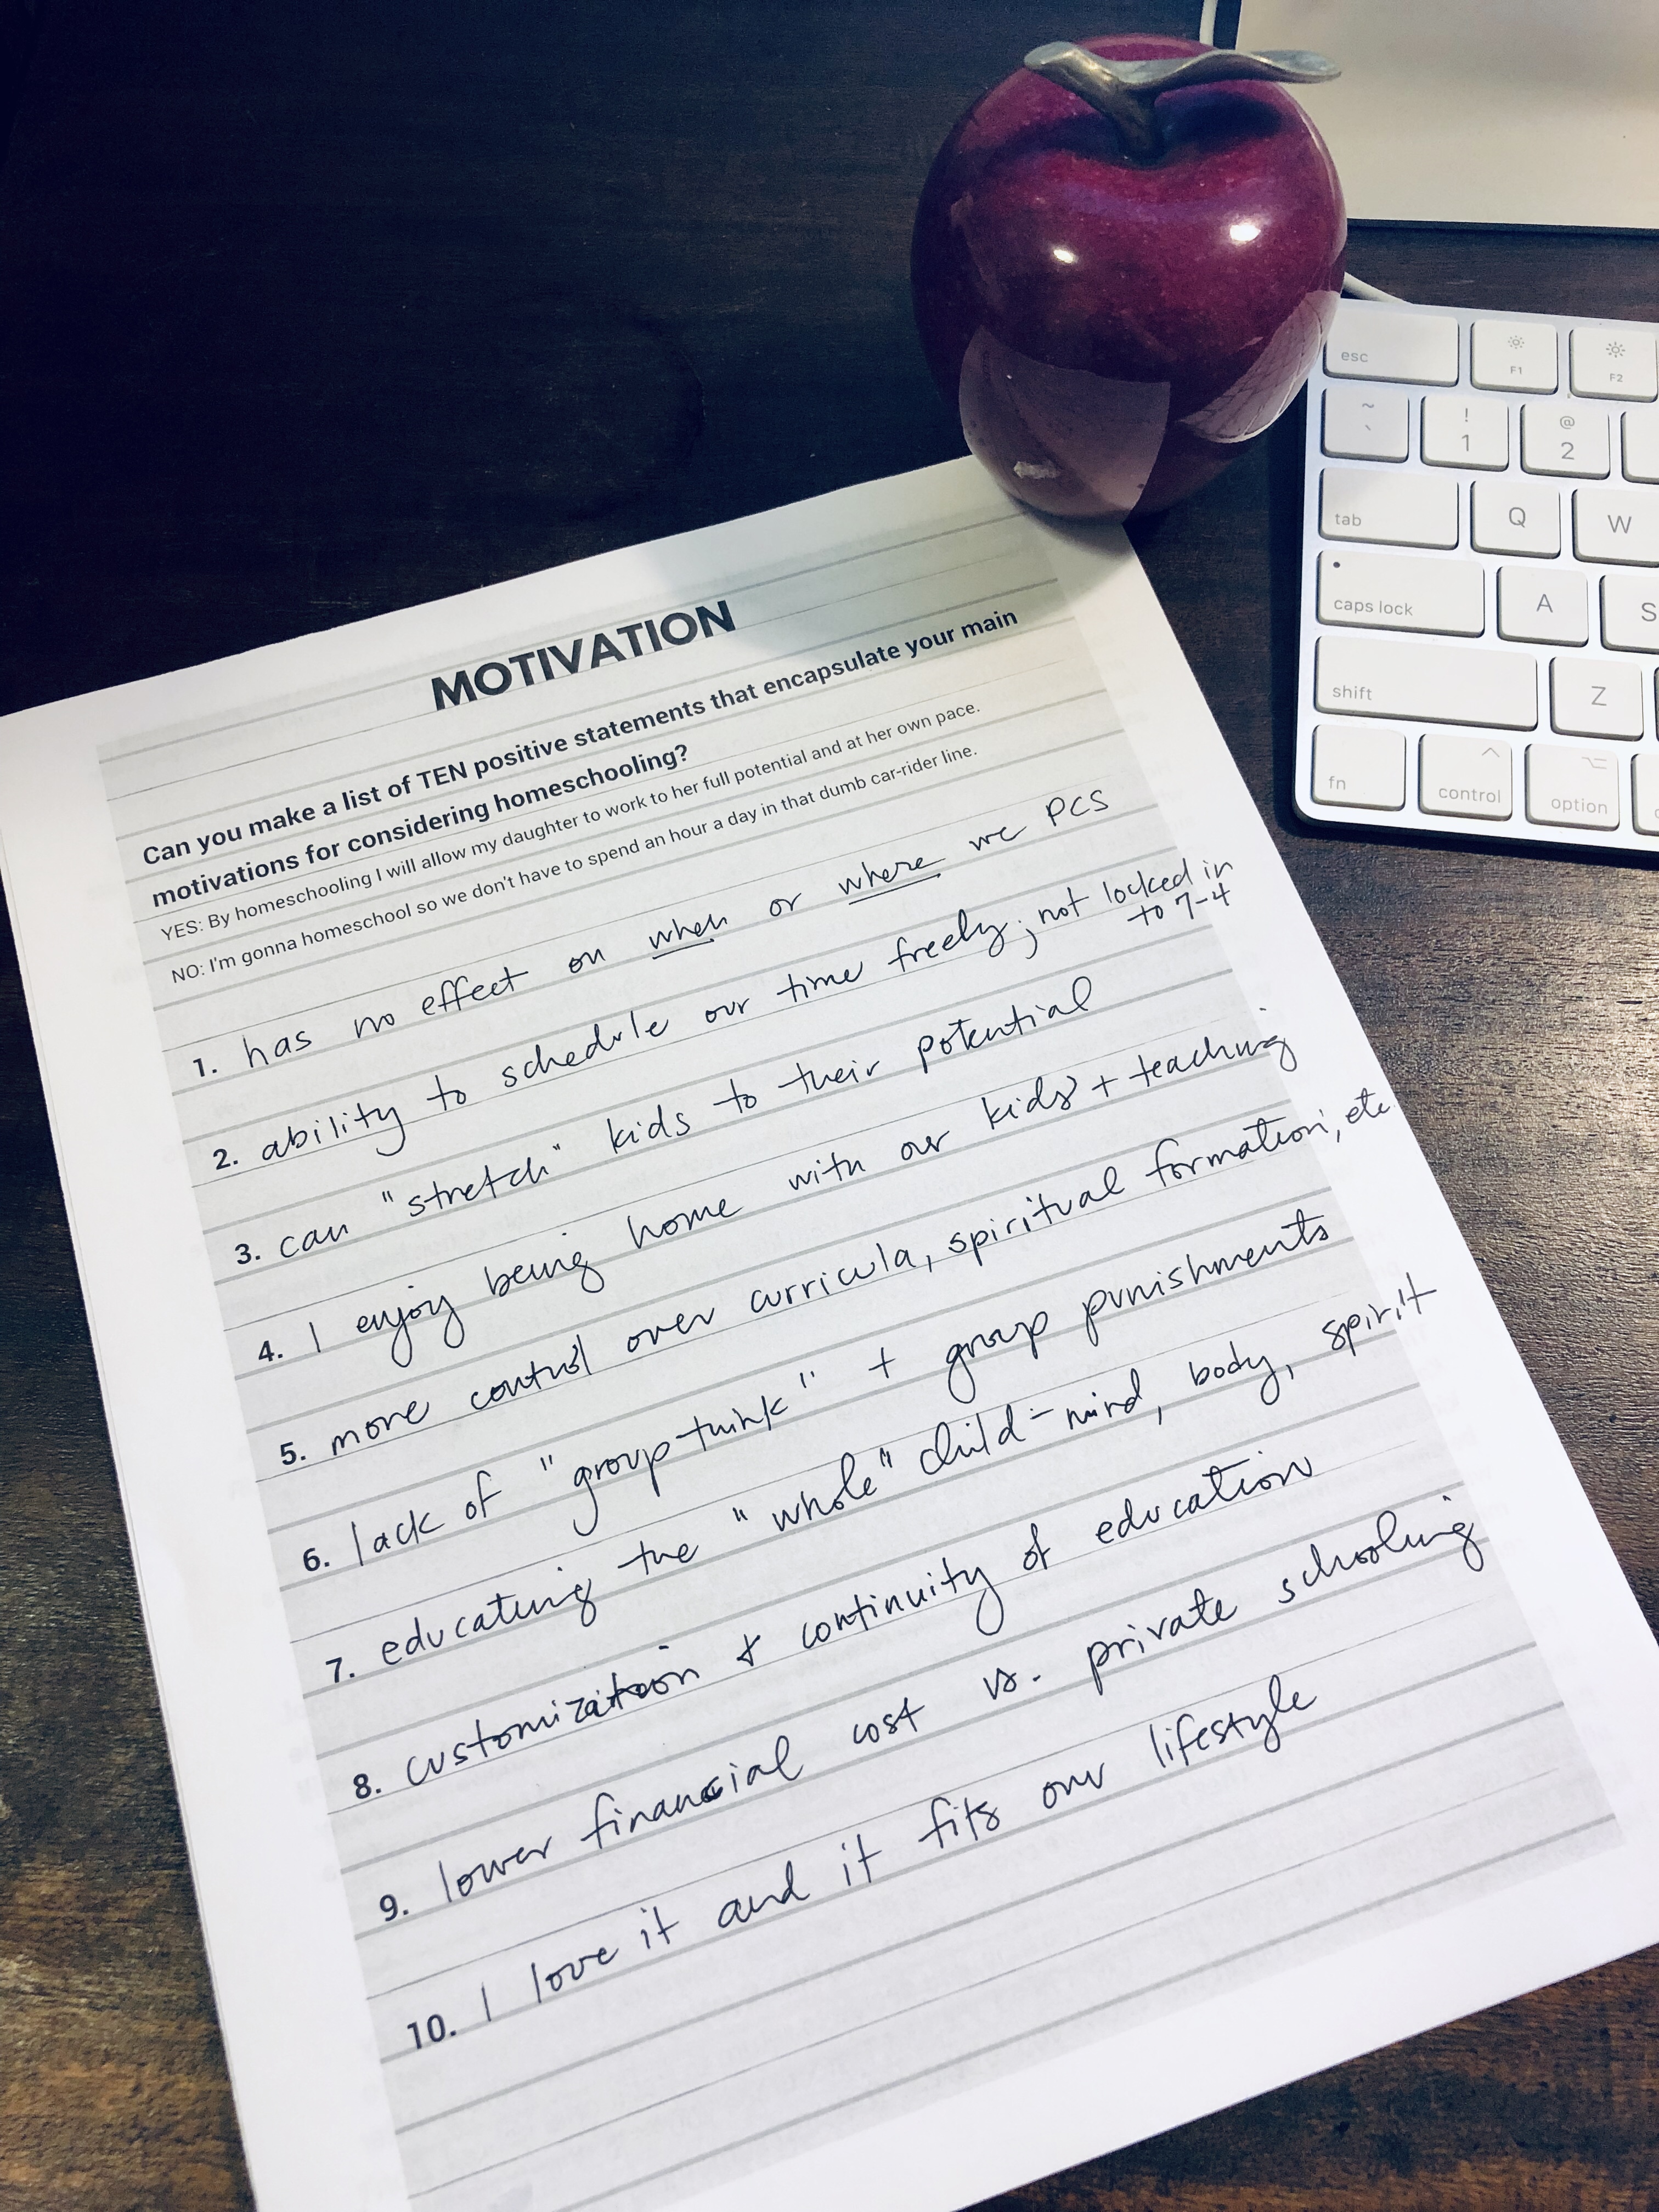 MOTIVATION
Can you make a list of TEN positive statements that encapsulate your main
motivations for considering homeschooling?
YES: By homeschooling I will allow my daughter to work to her full potential and at her own pace.
NO: I'm gonna homeschool so we don't have to spend an hour a day in that dumb car-rider line.
1. has no effect on when or where we PCS
2. ability to schedule our time freely; not locked in
to 7-4
3. can "stretch" kids to their potential
4. I enjoy being home with our kids + teaching
5. more control over curricula, spiritual formation, etc.
6. lack of "group-think" + group punishments
7. educating the "whole" child - mind, body, spirit
8. customization & continuity of education
9. lower financial cost vs. private schooling
10. I love it and it fits our lifestyle
esc F1 F2
~ ` ! 1 @ 2
tab Q W
caps lock A S
shift Z
fn control option